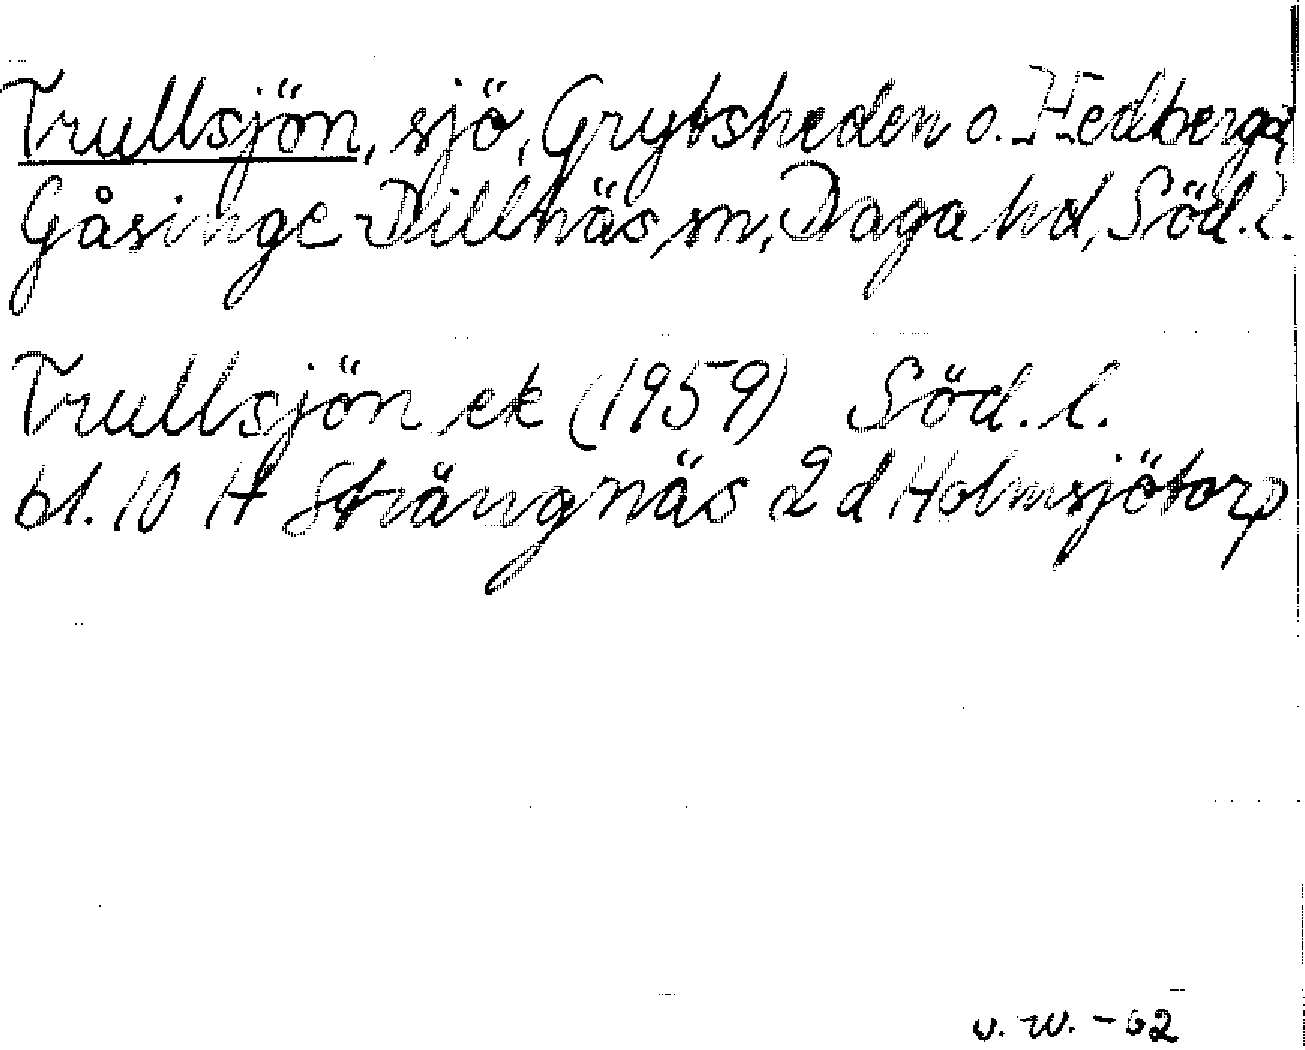 Trullsjön, sjö, Grytsheden o. Hedberga,
Gåsinge-Dillnäs sn, Daga hd, Söd.l.
Trullsjön ek (1959) Söd.l.
bl. 10 H Strängnäs 2 d Holmsjötorp
v. W. -62